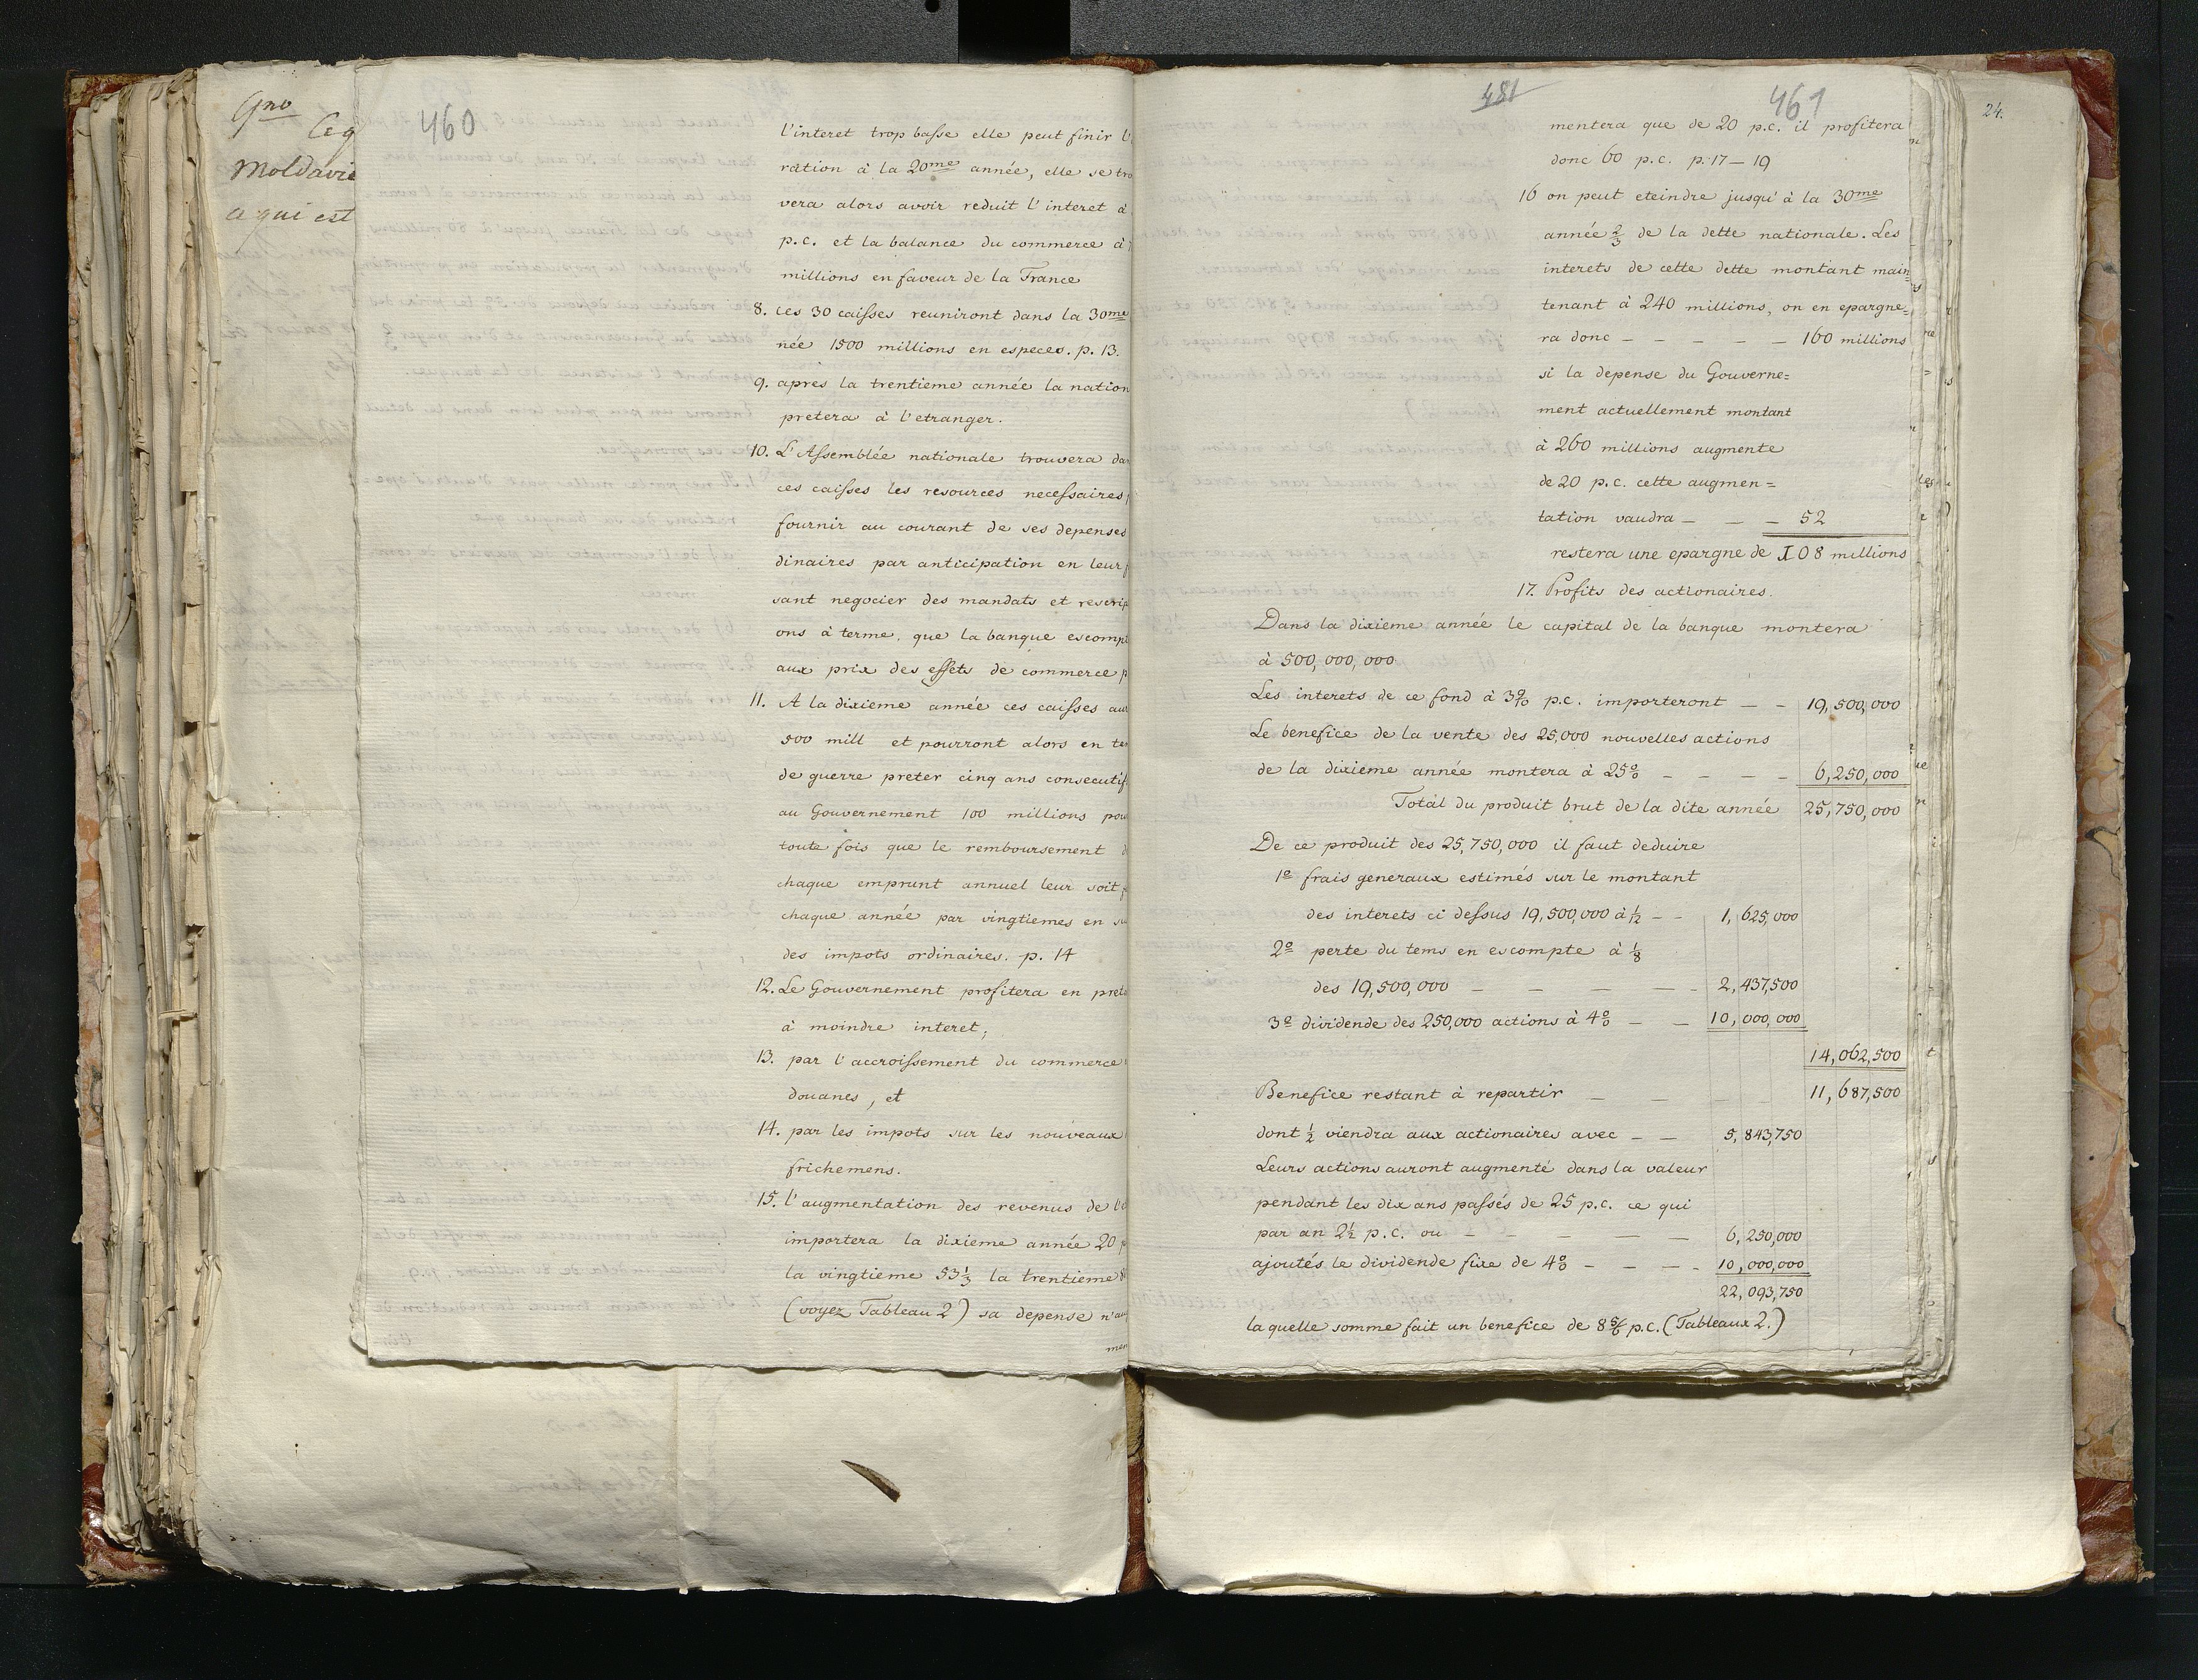 Gno
Ceq
Moldavie
a qui est
460
l'interet trop basse elle peut finir l'
ration à la 20me année, elle se tro
vera alors avoir reduit l'interet à
p.c. et la balance du commerce à
millions en faveur de la France
8. ces 30 caisses reuniront dans la 30me
née 1500 millions en especes. p. 13.
9. après la trentieme année la nation
pretera à l'etranger.
10. L'Assemblée nationale trouvera dan
ces caisses les resources necessaires
fournir au courant de ses depenses
dinaires par anticipation en leur
sant negocier des mandats et rescrip
ons à terme, que la banque escompt
aux prix des effets de commerce p
11. A la dixieme année ces caisses aur
500 mill et pourront alors en te
de guerre preter cinq ans consecutif
au Gouvernement 100 millions pou
toute fois que le remboursement d
chaque emprunt annuel leur soit
chaque année par vingtiemes en su
des impots ordinaires. p. 14
12. Le Gouvernement profitera en preta
à moindre interet;
13. par l'accroissement du commerce
douanes, et
14. par les impots sur les nouveaux
frichemens.
15. l'augmentation des revenus de l'
importera la dixieme année 20 p
la vingtieme 53⅓ la trentieme 8
(voyez Tableau 2) sa depense n'au
men
481
461
24.
mentera que de 20 p.c. il profitera
donc 60 p.c. p. 17 — 19
16 on peut eteindre jusqu'à la 30me
année ⅔ de la dette nationale. Les
interets de cette dette montant main=
tenant à 240 millions, on en epargne=
ra donc — — — — — 160 millions
si la depense du Gouverne=
ment actuellement montant
à 260 millions augmente
de 20 p.c. cette augmen=
tation vaudra — — — 52
restera une epargne de 108 millions
17. Profits des actionaires.
Dans la dixieme année le capital de la banque montera
à 500,000,000
Les interets de ce fond à 3 9/10 p.c. importeront — — 19,500,000
Le benefice de la vente des 25,000 nouvelles actions
de la dixieme année montera à 25% — — — — 6,250,000
Total du produit brut de la dite année 25,750,000
De ce produit des 25,750,000 il faut deduire
1º frais generaux estimés sur le montant
des interets ci dessus 19,500,000 à 1/12 — — 1,625,000
2º perte du tems en escompte à ⅛
des 19,500,000 — — — — 2,437,500
3º dividende des 250,000 actions à 4% — — 10,000,000
14,062,500
Benefice restant à repartir — — — — 11,687,500
dont ½ viendra aux actionaires avec — — 5,843,750
Leurs actions auront augmenté dans la valeur
pendant les dix ans passés de 25 p.c. ce qui
par an 2½ p.c. ou — — — — — 6,250,000
ajoutés le dividende fixe de 4% — — — — 10,000,000
22,093,750
la quelle somme fait un benefice de 8 5/6 p.c. (Tableaux 2.)